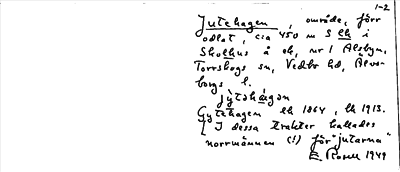 1-2
Jutehagen, område, förr
odlat, c:a 450 m S eh i
Skolhus å eh, nr 1 Älsbyn,
Torrskogs sn, Vedbo hd, Älvs-
borgs l.
jỳtəhàgən
Gytehagen eh 1864, eh 1913.
[I dessa trakter kallades
norrmännen (!) för "jutarna"
E. Rosell 1949